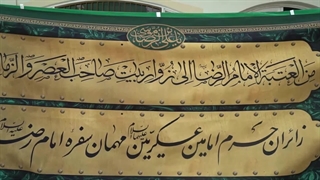 من العتبة الامام الرضا الی زوار بیت صاحب العصر والزما
زائران حرم امامین عسکریین علیهما السلام مهمان سفره امام رضا